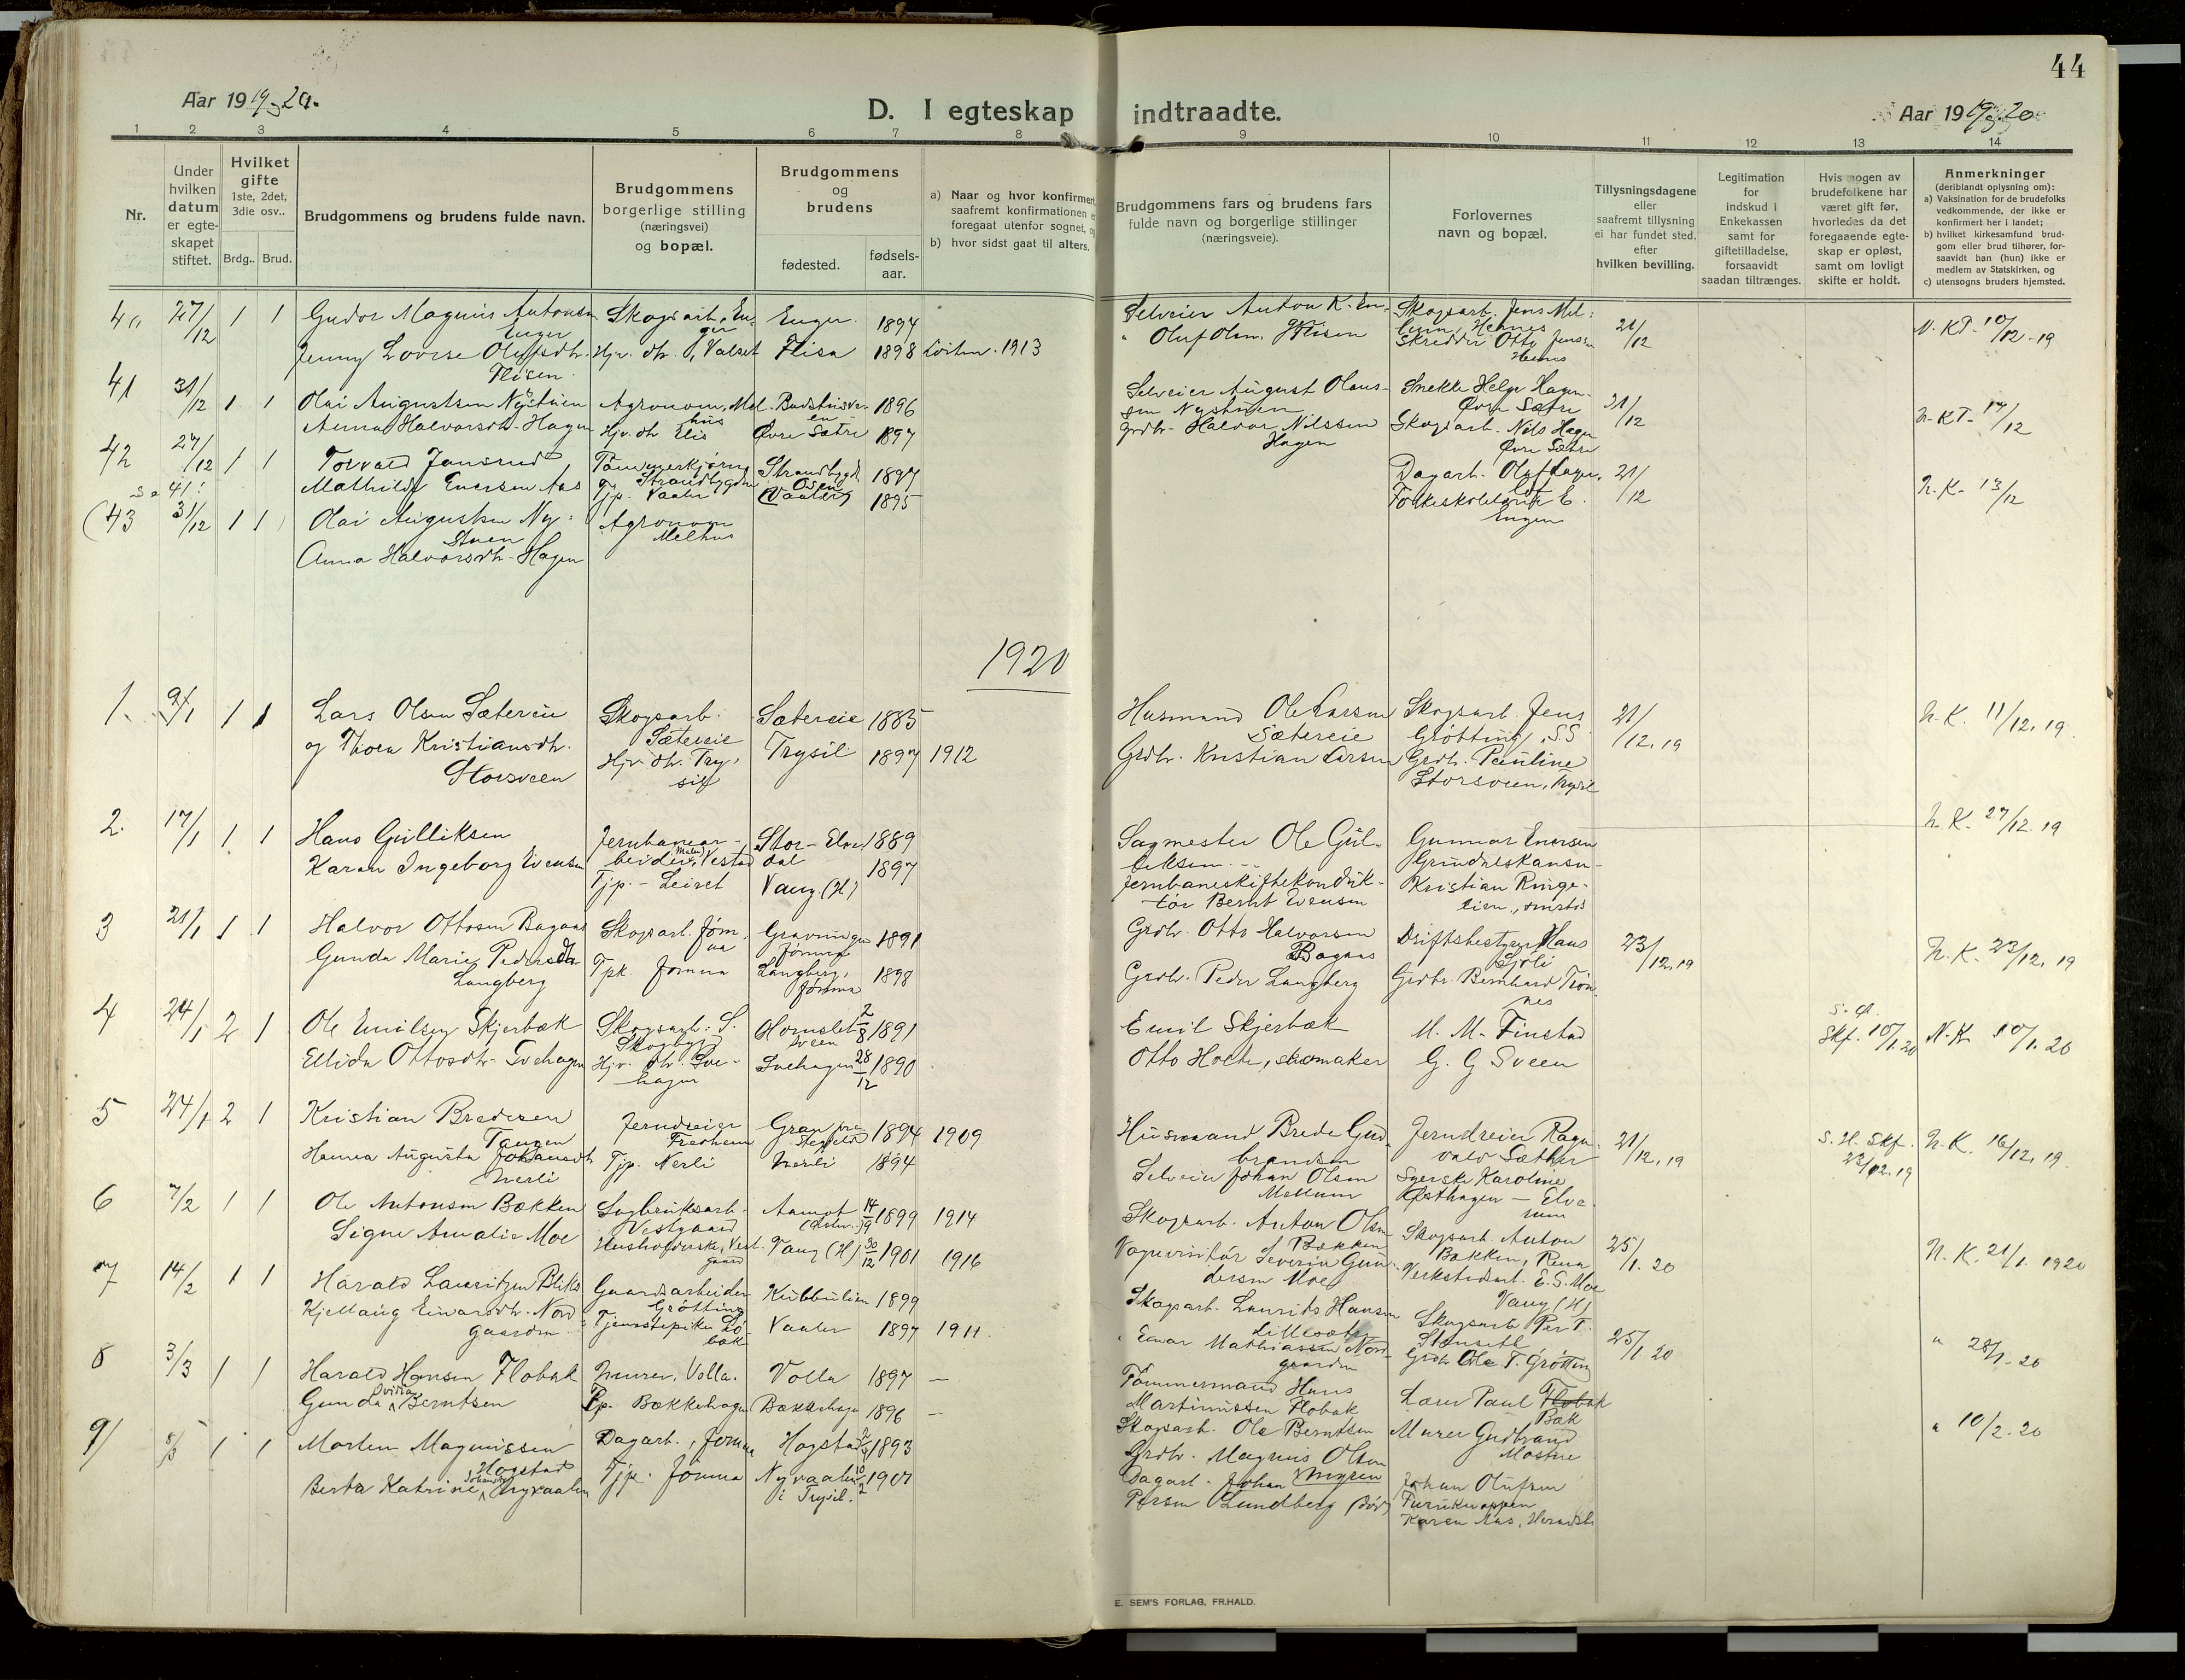 44
Aar 1919-20.
D. I egteskap indtraadte.
Aar 1919-20
1 2 3 4 5 6 7 8 9 10 11 12 13 14
Nr.
Under hvilken datum er egte-skapet stiftet.
Hvilket gifte
1ste, 2det, 3die osv..
Brdg.. Brud.
Brudgommens og brudens fulde navn.
Brudgommens borgerlige stilling (næringsvei) og bopæl.
Brudgommens og brudens
fødested.
fødsels-aar.
a) Naar og hvor konfirmert,
saafremt konfirmationen
foregaat utenfor sognet,
b) hvor sidst gaat til alters.
Brudgommens fars og brudens fars
fulde navn og borgerlige stillinger
(næringsveie).
Forlovernes
navn og bopæl.
Tillysningsdagene
eller
saafremt tillysning
ei har fundet sted,
efter
hvilken bevilling.
Legitimation
for
indskud i
Enkekassen
samt for
giftetilladelse,
forsaavidt
saadan tiltrænges.
Hvis nogen av
brudefolkene har
været gift før,
hvorledes da det
foregaaende egte-
skap er opløst,
samt om lovligt
skifte er holdt.
Anmerkninger
(deriblandt oplysning om):
a) Vaksination for de brudefolks
vedkommende, der ikke er
konfirmert her i landet;
b) hvilket kirkesamfund brud-
gom eller brud tilhører, for-
saavidt han (hun) ikke er
medlem av Statskirken, og
c) utensogns bruders hjemsted.
40 27/12 1 1 Gudor Magnus Antonsen Enger
Skogsarb. Enger Enger 1894
Jenny Lovise Olufsdtr. Flisen
Hjv. dtr., Valset Flisa 1898 1913
Selveier Anton K. En-
" Oluf Olsen Flisen
Skogsarb. Jens Mel-
Skredder Otto Jensen
21/12
N. KT. 10/12-19
41 31/12 1 1 Olai Augustsen Nystuen
Agronom, Melhus 1896
Anna Halvorsdtr. Hagen
Hjv. dtr. Øvre Sætre 1897
Selveier August Olaus-
sen Nystuen
Grdbr. Halvor Nilssen
Hagen
Snekker Helge Hagen
Øvre Sætre
Skogsarb. Nils Hagen
Øvre Sætre
21/12
N. KT. 17/12
42 27/12 1 1 Torvald Jansrud
Tømmerkjører Strandbygden Strandbygd 1897
Mathilde Enersen Aas
Tjp. Vaaler 1895
21/12
N. K. 13/12
Se 41!
(43 31/12 1 1 Olai Augustsen Ny-
stuen
Agronom
Melhus
Anna Halvorsdtr. Hagen
1920
1. 9/1 1 1 Lars Olsen Sætereie
Skogsarb. Sætereie Sætereie 1885
og Thora Kristiansdtr.
Storsveen
Hjv. dtr. Try-
sil Trysil 1897 1912
Husmand Ole Larsen
Sætereie
Grdbr. Kristian Larsen
Skogsarb. Jens
Grøtting, S.S.
Grdbr. Pauline
Storsveen, Trysil
21/12. 19
N. K. 11/12. 19.
2. 17/1 1 1 Hans Gulliksen
Jernbanear-
beider, Vestad Stor-Elvdal 1889
Karen Ingeborg Evensen
Tjp. - Leiret Vang (H) 1897
Sagmester Ole Gul-
liksen
Jernbaneskiftekonduk-
tør Bernt Evensen
Gunnar Enersen
Kristian Ringe-
lien
N. K. 27/12. 19
3 21/1 1 1 Halvor Ottosen Bagaas
Skogsarb. Jømna Jømna 1891
Gunda Marie Pedersdtr.
Langberg
Tpk. Jømna Langberg, Jømna 1898
Grdbr. Otto Halvorsen
Bagaas
Grdbr. Peder Langberg
Driftsbestyrer Hans
Sjøli
Grdbr. Bernhard Trøn-
nes
23/12. 19
N. K. 23/12. 19
4 24/1 2 1 Ole Emilsen Skjerbæk
Skogsarb. S.
Skogbygd Hornslet-
sveen 2/8 1891
Ellida Ottosdtr. Svehagen
Hjv. dtr. Sve-
hagen Svehagen 28/12 1890
Emil Skjerbæk
Otto Holte, skomaker
M. M. Finstad
G. G. Sveen
Skf. 10/1. 20
N. K. 10/1. 20
5 24/1 2 1 Kristian Bredesen
Tangen
Jerndreier
Fredheim Gran 1894 1909
Hanna Augusta Johansdtr.
Nerli
Tjp. Nerli Nerli 1894
Husmand Brede Gud-
brandsen
Selveier Johan Olsen
Mellum
Jerndreier Ragn-
vald Sæther
Syerske Karoline
Østhagen - Elve-
rum
21/12. 19
Skf. 23/12. 19
N. K. 16/12. 19.
6 7/2 1 1 Ole Antonsen Bækken
Sagbruksarb.
Vestgaard Aamot 14/9 1899 1914
Signe Amalie Moe
Husholderske, Vest-
gaard Vang (H) 30/12 1901 1916
Skogsarb. Anton Olsen
Bækken
Vognvisitør Severin Gun-
dersen Moe
Skogsarb. Anton
Bækken, Rena
Verkstedarb. E. S. Moe
Vang (H)
25/1. 20
N. K. 21/1. 1920
7 14/2 1 1 Harald Lauritzen
Gaardsarbeider
Grøtting Kubbulien 1899
Kjellaug Einarsdtr. Nord-
gaarden
Tjenestepike Vaaler 1897 1911.
Skogsarb. Laurits Hansen
Lillesæter
" Einar Mathiassen Nord-
gaarden
Skogsarb. Per T.
Stenseth
Grdbr. Ole T. Grøtting
25/1. 20
" 28/1. 20
8 3/3 1 1 Harald Hansen Flobak
Murer, Volla. Volla 1897 -
Gunda Ovidia Berntsen
Tp. Bækkehagen Bækkehagen 1896 -
Tømmermand Hans
Martinussen Flobak
Skogsarb. Ole Berntsen
Lærer Paul Flobak
Bæk
Murer Gudbrand
Mostue
" 10/2. 20
9/ 8/3 1 1 Morten Magnussen
Hogstad
Dagarb., Jømna Hogstad 1893
Berta Katrine Johansdtr. Nyvaalen
Tjp. Jømna Nyvaalen
i Trysil. 10/2 1901
Grdbr. Magnus Olsen
Myren
Dagarb. Johan
Persen Lundberg (død)
Johan Olufsen
Furuknappen
Karen Aas, Hernæs
E. SEM'S FORLAG, FR.HALD.